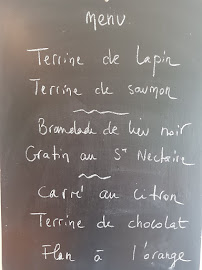 Menu
Terrine de Lapin
Terrine de saumon
Brandade de lieu noir
Gratin au St Nectaire
Carré au citron
Terrine de chocolat
Flan à l'orange